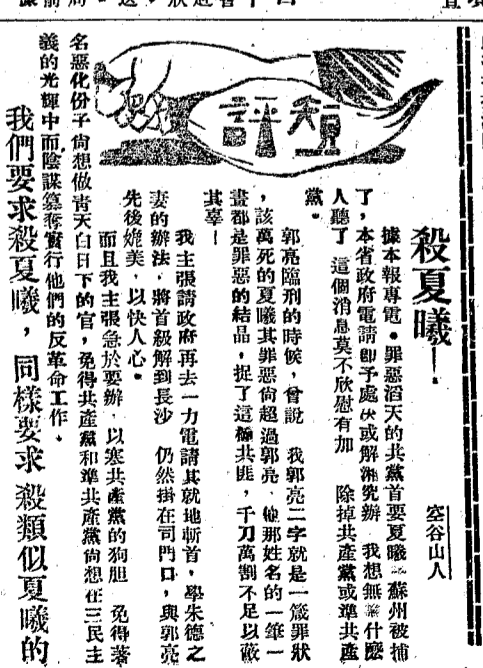 短評
殺夏曦!
空谷山人
據本報專電。罪惡滔天的共黨首要夏曦 蘇州被捕
了,本省政府電請卽予處決或解湘究辦 我想無論什麼
人聽了 這個消息莫不欣慰有加 除掉共產黨或準共產
黨。
郭亮臨刑的時候,曾說 我郭亮二字就是一篇罪狀
,該萬死的夏曦其罪惡尚超過郭亮、他那姓名的一筆一
畫都是罪惡的結晶,捉了這種共匪,千刀萬割不足以蔽
其辜!
我主張請政府再去一力電請其就地斬首,學朱德之
妻的辦法,將首級解到長沙 仍然掛在司門口,與郭亮
先後媲美,以快人心。
而且我主張急於要辦,以寒共產黨的狗胆 免得著
名惡化份子尚想做青天白日下的官,免得共產黨和準共產黨尚想在三民主
義的光輝中而陰謀篡奪實行他們的反革命工作。
我們要求殺夏曦,同樣要求 殺類似夏曦的